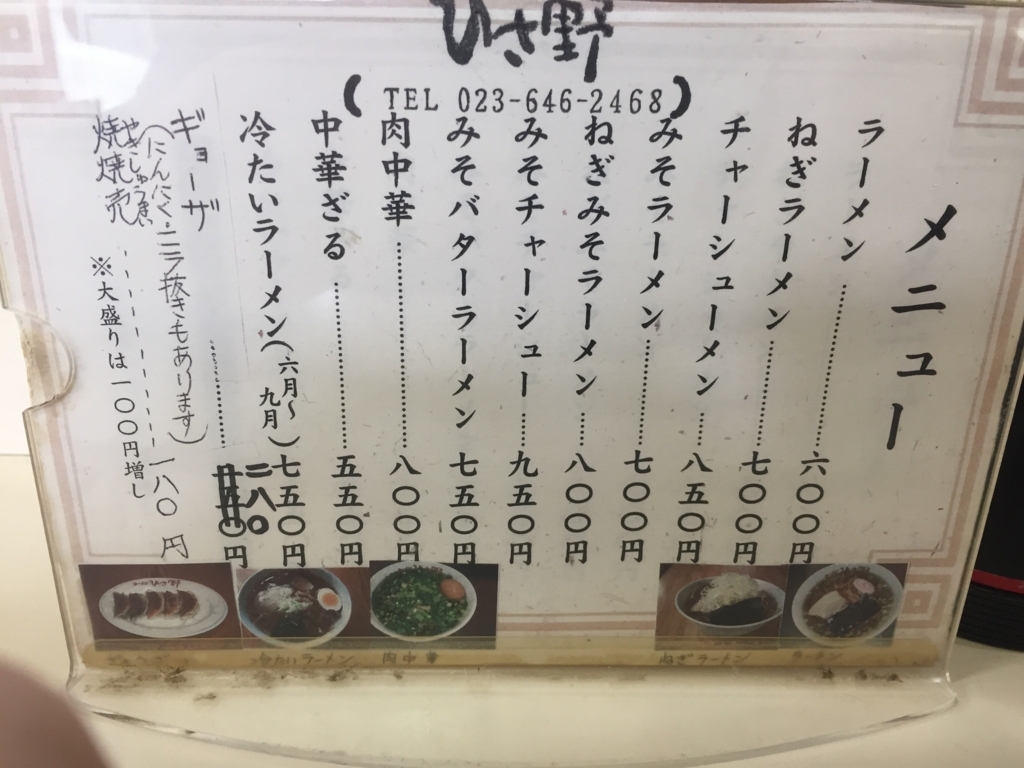 ひさ野
(TEL 023-646-2468)
メニュー
ラーメン……六〇〇円
ねぎラーメン……七〇〇円
チャーシューメン……八五〇円
みそラーメン……七〇〇円
ねぎみそラーメン……八〇〇円
みそチャーシュー……九五〇円
みそバターラーメン 七五〇円
肉中華……八〇〇円
中華ざる……五五〇円
冷たいラーメン(六月〜九月)七五〇円
ギョーザ……二八〇円
(にんにく・ニラ抜きもあります)
焼焼売……一八〇円
※大盛りは一〇〇円増し
冷たいラーメン
肉中華
ねぎラーメン
ラーメン